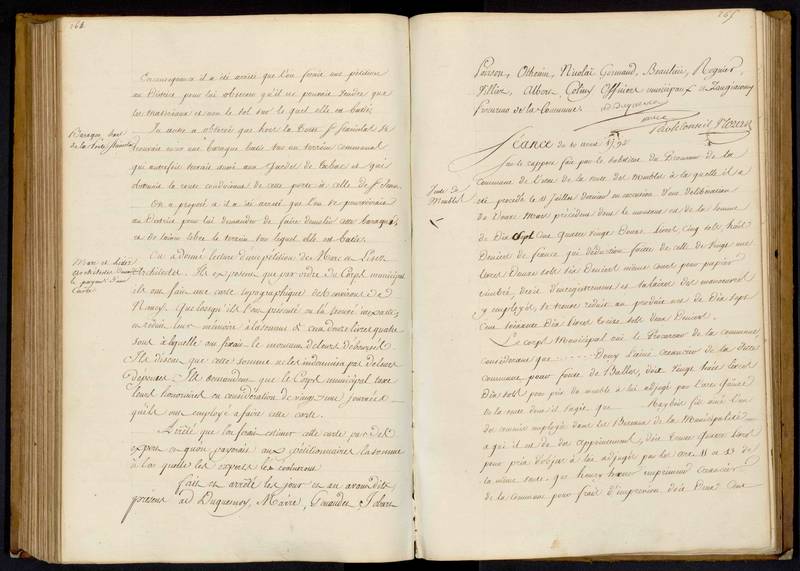 264
En conséquence il a été arrêté que l'on ferait une pétition
au District pour lui observer qu'il ne pouvait vendre que
les matériaux et non le sol sur le quel elle est batie.
Baraque hors
de la Porte Stanislas
Un autre a observé que hors la Porte St Stanislas se
trouvait une baraque batie sur un terrein communal
qui autrefois servait aux de tabac et qui
obstruait la route conduisant de cette porte à celle de St Jean.
On a proposé et il a été arrêté que l'on se pourvoirait
au District pour lui demander de faire démolir cette baraque
et de laisser libre le terrein sur lequel elle est batie.
Marc et
architectes
le payement d'une
Carte
On a donné lecture d'une pétition des Marc et
architectes. Ils exposent que par ordre du Corps municipal
ils ont fait une carte topographique des environs de
Nancy. Que lorsqu'ils l'ont présenté on l'a trouvée inexacte,
on réduit leur mémoire à la somme de cent douze livres quatre
sous à laquelle on ferait le montant de leurs déboursés.
Ils disent que cette somme ne les indemnise pas de leurs
dépenses. Ils demandent que le Corps municipal taxe
leurs honoraires en considération de vingt-une journées
qu'ils ont employé à faire cette carte.
Arrêté que l'on ferait estimer cette carte par des
experts et qu'on payerait aux pétitionnaires la somme
à la quelle les experts
Fait et arrêté les jour et an avant dits
présens Duquesnoy, Maire,
265
Poirson, Othenin, Nicolaï Germand, Beaulieu, Rognier,
Albert Coliny Officiers municipaux et
Procureur de la Commune
Duquesnoy
maire
Séance du 10 août 1792
Vente de
Meubles
Sur le rapport fait par le substitut du Procureur de la
commune de l'état de la vente des meubles à la quelle il a
été procédé le 11 juillet dernier en exécution d'une délibération
du Douze Mars précédent dont le montant est de la somme
de Dix sept cent quatre vingt Douze livres cinq sols huit
Deniers de france qui déduction faite de celle de vingt une
livres Douze sols dix Deniers même cours pour papier
timbré, droit d'enregistrement et salaires des manoeuvres
y employés, se trouve réduit au produit net de Dix sept
cent soixante dix livres treize sols deux Deniers.
Le corps Municipal ouï le Procureur de la commune,
considérant que ........ Dony l'aîné créancier de la dite
commune pour fonte de Balles, doit vingt huit livres
Dix sols pour prix de meuble à lui adjugé par l'art
de la vente dont il s'agit que fils aîné l'un
des commis employés dans les Bureaux de la Municipalité
à qui il est dû des appointemens, doit Douze quatre livres
pour prix d'objets à lui adjugés par les art. 11 et 23 de
la même vente. que henry imprimeur créancier
de la commune pour frais d'impression doit Deux cent